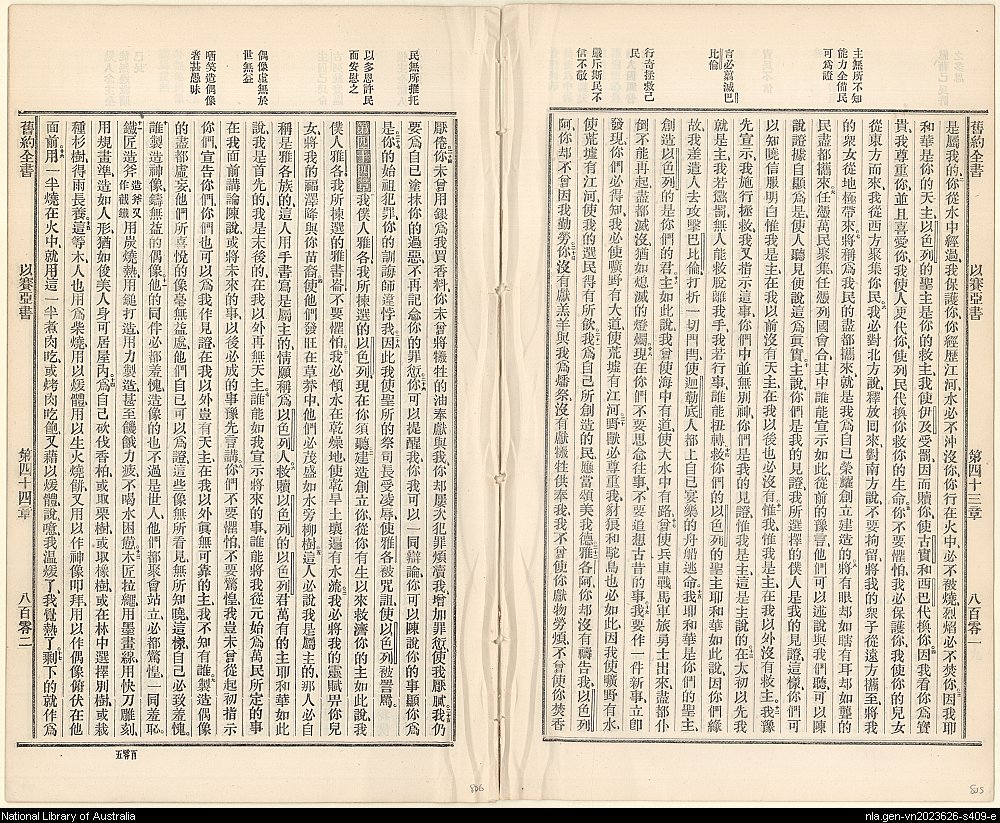 主無所不知
能力全備民
可為證
言必翦滅巴
比倫
行奇拯救己
民
嚴斥斯民不
信不敬
舊約全書 以賽亞書 第四十三章 八百零一
是屬我的你從水中經過我保護你你經歷江河水必不沖沒你你行在火中必不被燒烈焰必不焚你因我耶
和華是你的天主以色列的聖主是你的救主我使伊及受罰因而贖你使古實和西巴代換你因我看你為寶
貴我尊重你並且喜愛你我使人更代你使列民代換你救你的生命你不要懼怕我必保護你我使你的兒女
從東方而來我從西方聚集你民我必對北方說釋放回來對南方說不要拘留將我的衆子從遠方攜至將我
的衆女從地極帶來將稱為我民的盡都攜來就是我為自己榮耀創立建造的將有眼卻如瞎有耳卻如聾的
民盡都攜來任憑萬民聚集任憑列國會合其中誰能宣示如此從前的豫言他們可以述說與我們聽可以陳
說證據自顯為是使人聽見便說這為眞實主說你們是我的見證我所選擇的僕人是我的見證這樣你們可
以知曉信服明白惟我是主在我以前沒有天主在我以後也必沒有惟我是主在我以外沒有救主我豫
先宣示我施行拯救我又指示這事你們中並無別神你們是我的見證惟我是主這是主說的在太初以先我
就是主我若懲罰無人能救脫離我手我若行事誰能扭轉救你們的以色列的聖主耶和華如此說因你們緣
故我差遣人去攻擊巴比倫打折一切門閂使迦勒底人都上自己宴樂的舟船逃命我耶和華是你們的聖主
創造以色列的是你們的君主如此說我曾使海中有道使大水中有路曾使兵車戰馬軍旅勇士出來盡都仆
倒不能再起盡都滅沒猶如熄滅的燈燭現在你們不要思念往事不要追想古昔的事我要作一件新事立卽
發現你們必得知我必使曠野有大道使荒墟有江河野獸必尊重我豺狼和鴕鳥也必如此因我使曠野有水
使荒墟有江河使我的選民得有所飲我為自己所創造的民應當頌美我德雅各阿你卻沒有禱告我以色列
阿你却不曾因我勤勞你沒有獻羔羊與我為燔祭沒有獻犧牲供奉我我不曾使你獻物勞煩不曾使你焚香
民無所推托
以多恩許民
而安慰之
偶像虛無於
世無益
哂笑造偶像
者甚愚昧
厭倦你未曾用銀為我買香料你未曾將犧牲的油奉獻與我你却屢次犯罪煩瀆我增加罪愆使我厭膩我仍
要為自己塗抹你的過惡不再記念你的罪愆你可以提醒我你我可以一同辯論你可以陳說你的事顯你為
是你的始祖犯罪你的訓誨師違悖我因此我使聖所的祭司長受凌辱使雅各被咒詛使以色列被詈罵
第四十四章我僕人雅各我所揀選的以色列現在你須聽建造創立你從你有生以來救濟你的主如此說我
僕人雅各我所揀選的耶書崙不要懼怕我必傾水在乾燥地使乾旱土壤遍有水流我必將我的靈賦畀你兒
女將我的福澤降與你苗裔使他們發旺在草莽中他們必茂盛如水旁柳樹這人必說我是屬主的那人必自
稱是雅各族的這人用手書寫是屬主的情願稱為以色列人救贖以色列的以色列君萬有的主耶和華如此
說我是首先的我是末後的在我以外再無天主誰能如我宣示將來的事誰能將我從元始為萬民所定的事
在我面前講論陳說或將未來的事以後必成的事豫先言講你們不要懼怕不要驚惶我豈未曾從起初指示
你們宣告你們你們也可以為我作見證在我以外豈有天主在我以外眞無可靠的主我不知有誰製造偶像
的盡都虛妄他們所喜悅的像毫無益處他們自己可以為證這些像無所看見無所知曉這樣自己必致羞愧
誰製造神像鑄無益的偶像他的同伴必都羞愧造像的也不過是世人他們都聚會站立必都驚惶一同羞恥
鐵匠造斧造斧又作截鐵用炭燒熱用鎚打造用力製造甚至饑餓力疲不喝水困憊木匠拉繩用墨畫線用快刀雕刻
用規畫準造如人形猶如後美人身可居屋內為自己砍伐香柏或取栗樹或取橡樹或在林中選擇別樹或栽
種杉樹得雨長養這等木人也用為柴燒用以煖體用以生火燒餅又用以作神像叩拜用以作偶像俯伏在他
面前用一半燒在火中就用這一半煮肉吃或烤肉吃飽又藉以煖體說噫我温煖了我覺熱了剩下的就作為
舊約全書 以賽亞書 第四十四章 八百零二
百零五
806
805
National Library of Australia
nla.gen-vn2023626-s409-e